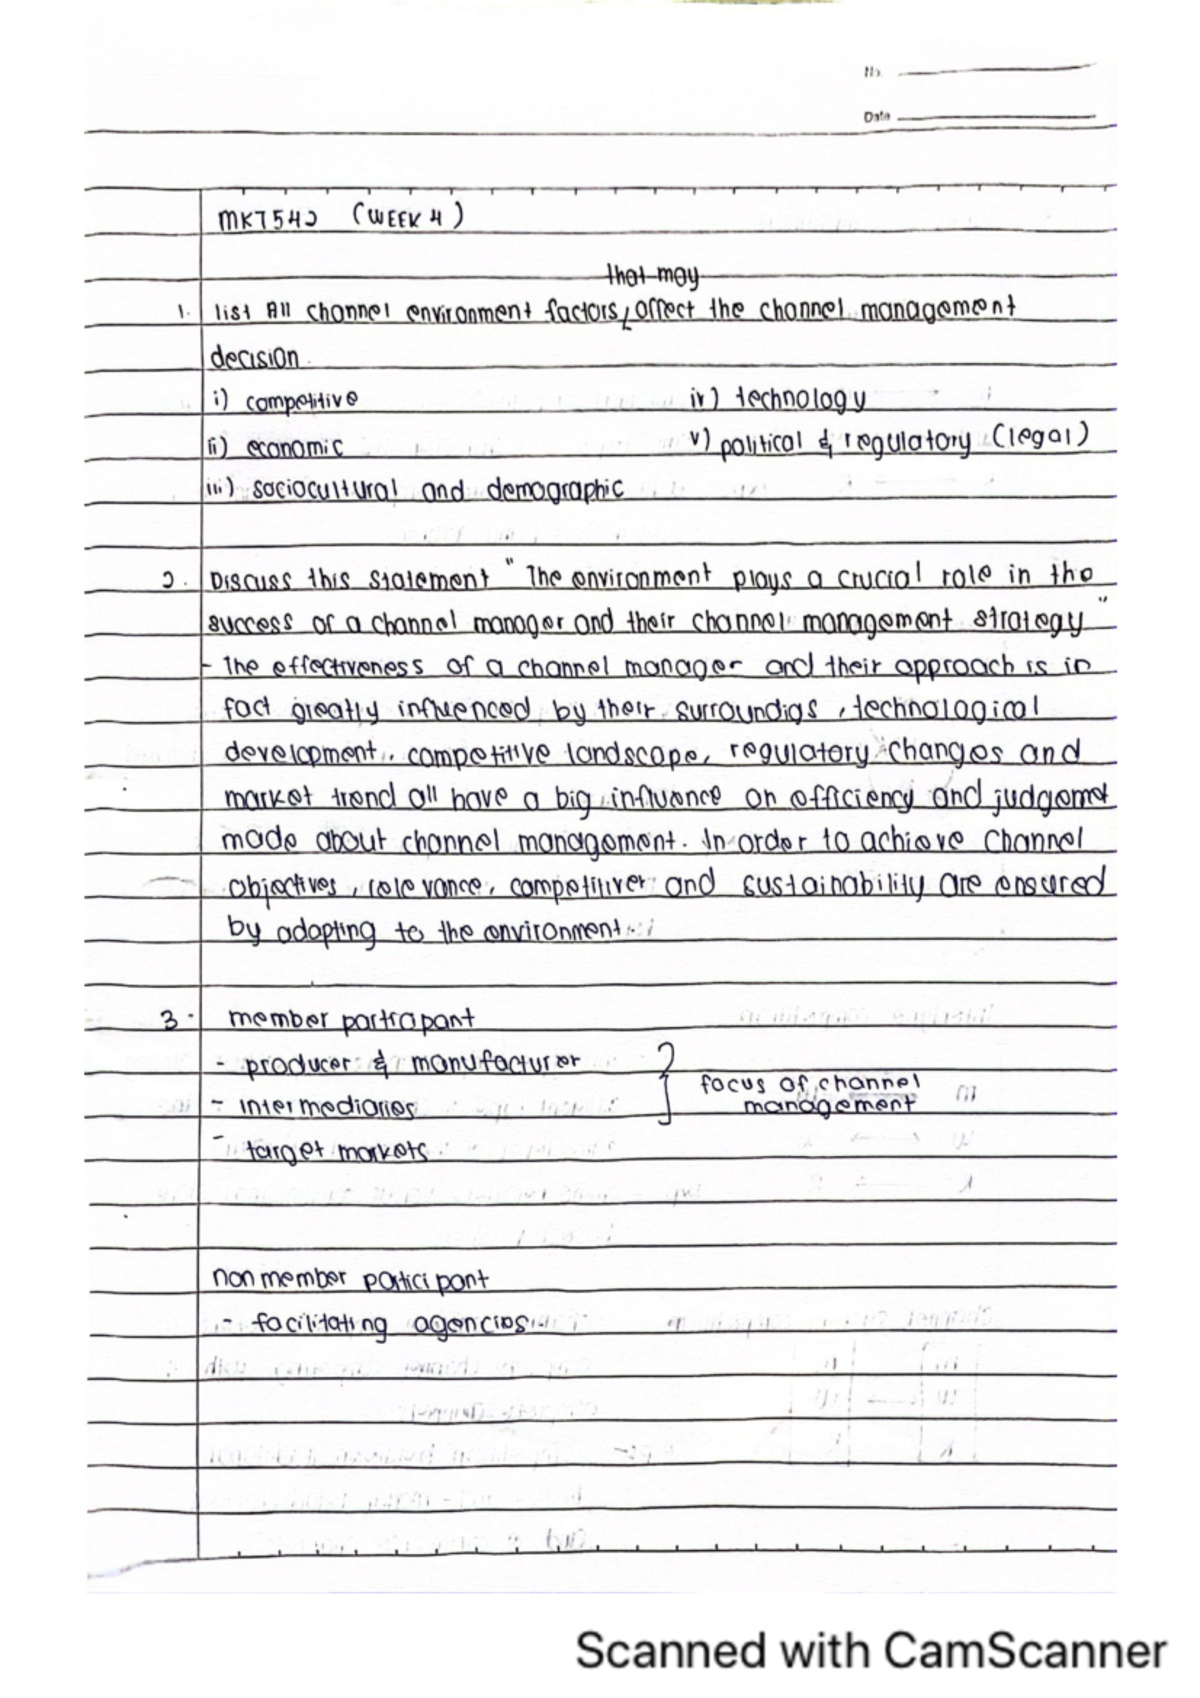 No.
Date
MKT542 (WEEK 4)
that may
1. list All channel environment factors, affect the channel management
decision.
i) competitive
iv) technology
ii) economic
v) political & regulatory (legal)
iii) sociocultural and demographic
2. Discuss this statement " The environment plays a crucial role in the
success of a channel manager and their channel management strategy "
- the effectiveness of a channel manager and their approach is in
fact greatly influenced by their surroundigs , technological
development, competitive landscape, regulatory changes and
market trend all have a big influence on efficiency and judgemet
made about channel management. In order to achieve channel
objectives , relevance, competitiver and sustainability are ensured
by adapting to the environment
3. member participant
- producer & manufacturer
focus of channel
management
- intermediaries
- target markets
non member participant
- facilitating agencies
Scanned with CamScanner